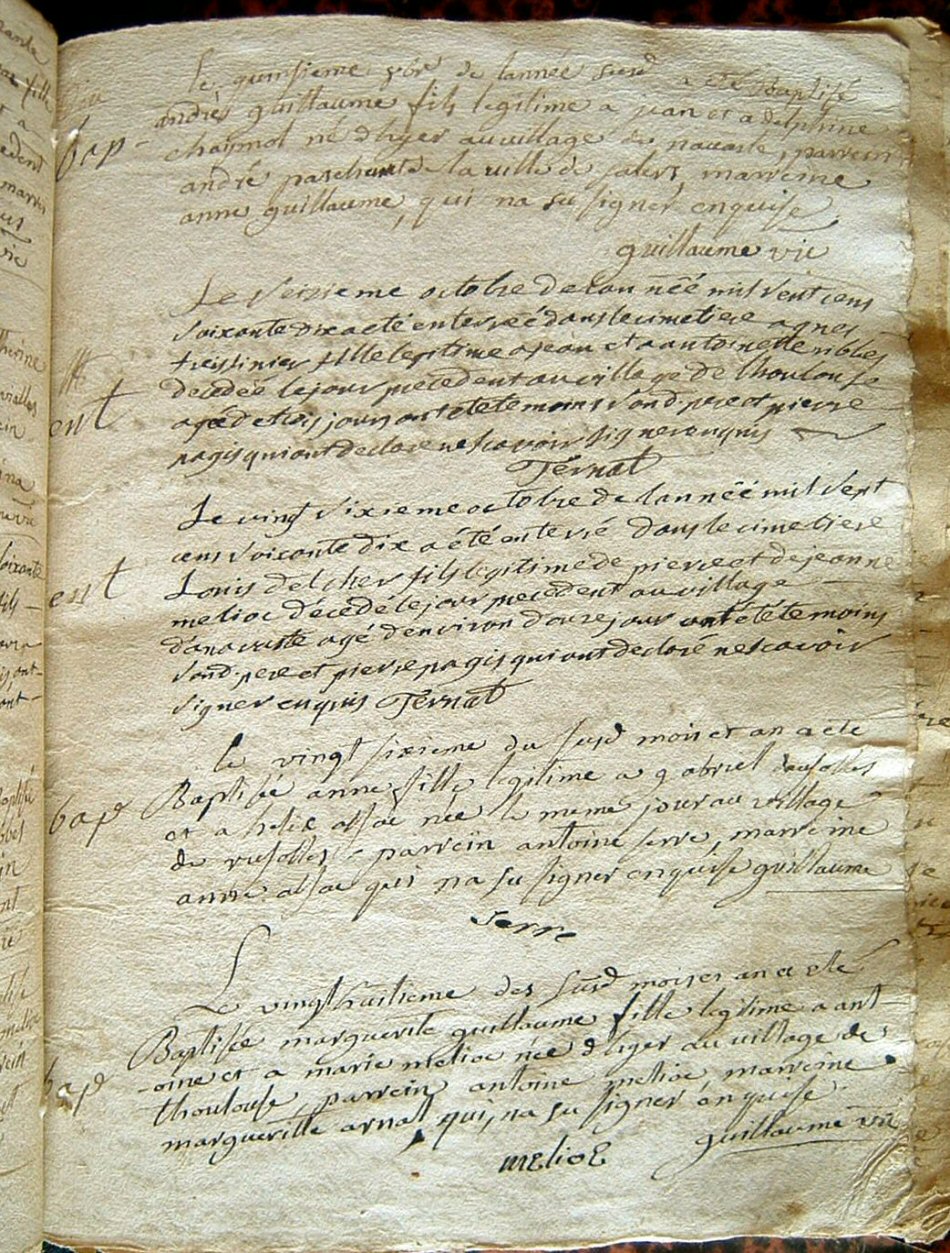 le quinsieme 8bre de lannée susd a été Baptisé
andrès guillaume fils legitime a jean et a delphine
chaimot né dhyer au village de navaste, parrein
bap-
andré paschent de la ville de salers marreine
anne guillaume, qui na su signer enquise
guillaume vie
Le Seizieme octobre de Lannéé mil Sept cens
Soixante dix a eté enterréé dans le cimetiere agnes
treissinier fille legitime a jean et a antoinette ribbes
decedéé le jour precedent au village de thoulouse
ent
agéé de trois jours ont eté temoins Sond. pere et pierre
pagis qui ont declaré ne scavoir signer enquis
Ternat
Le vingt Sixieme octobre de Lannéé mil Sept
cens Soixante dix a été enterré dans le cimetiere
ent
Louis delcher fils legitime de pierre et de jeanne
melioc decedé le jour precedent au village
d'anavaste agé d'environ douze jour ont été temoins
Sond. pere et pierre pagis qui ont declaré ne scavoir
signer enquis Ternat
le vingt sixieme du susd mois et an a ete
bap
Baptisée anne fille legitime a gabriel rusolles
et a helix alsac née le meme jour au village
de rusolles, parrein antoine serre, marreine
anne alsac qui na su signer enquise guillaume
serre
Le vingt huitieme des susd mois et an a eté
Baptisée marguerite guillaume fille legitime a ant-
bap
-oine et a marie melioc née dhyer au village de
thoulouse, parrein antoine melioc, marreine
margueritte arnal qui, na su signer enquise
guillaume vie
melioc